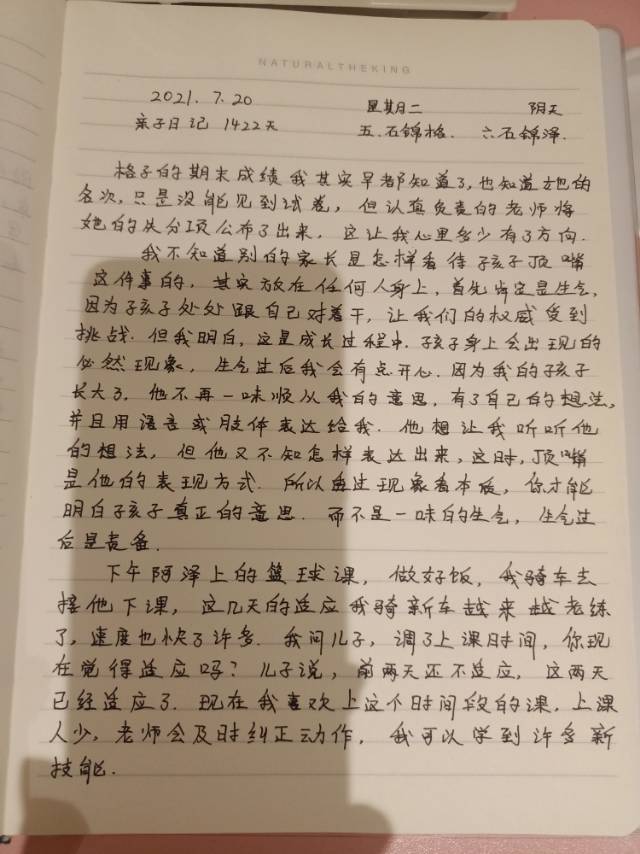 NATURALTHEKING
2021. 7. 20 星期二 阴天
亲子日记 1422天 五.石锦格. 六石锦泽.
格子的期末成绩我其实早都知道了,也知道她的
名次,只是没能见到试卷,但认真负责的老师将
她的从分项公布了出来,这让我心里多少有了方向.
我不知道别的家长是怎样看待孩子顶嘴
这件事的,其实放在任何人身上,首先肯定是生气,
因为子孩子处处跟自己对着干,让我们的权威受到
挑战.但我明白,这是成长过程中.子孩子身上会出现的
必然现象,生气过后我会有点开心.因为我的子孩子
长大了.他不再一味顺从我的意思,有了自己的想法,
并且用语言或肢体表达给我.他想让我听听他
的想法,但他又不知怎样表达出来,这时,顶嘴
是他的表现方式.所以透过现象看本质,你才能
明白子孩子真正的意思.而不是一味的生气,生气过
后是责备.
下午阿泽上的篮球课,做好饭,我骑车去
接他下课,这几天的适应我骑新车越来越老练
了,速度也快了许多.我问儿子,调了上课时间,你现
在觉得适应吗?儿子说,前两天还不适应,这两天
已经适应了.现在我喜欢上这个时间段的课,上课
人少,老师会及时纠正动作,我可以学到许多新
技能.